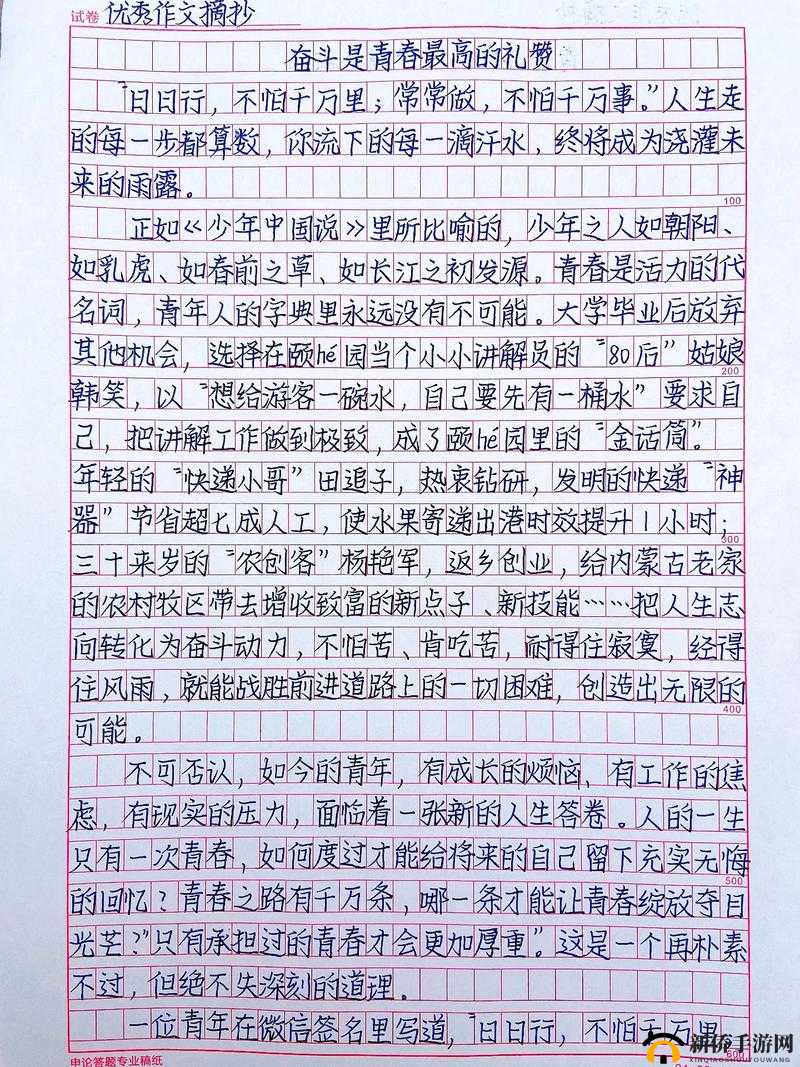 试卷 优秀作文摘抄
奋斗是青春最高的礼赞
"日日行，不怕千万里；常常做，不怕千万事。"人生走
的每一步都算数，你流下的每一滴汗水，终将成为浇灌未
来的雨露。
100
正如《少年中国说》里所比喻的，少年之人如朝阳、
如乳虎、如春前之草、如长江之初发源。青春是活力的代
名词，青年人的字典里永远没有不可能。大学毕业后放弃
其他机会，选择在颐hé园当个小小讲解员的"80后"姑娘
200
韩笑，以"想给游客一碗水，自己要先有一桶水"要求自
己，把讲解工作做到极致，成了颐hé园里的"金话筒"。
年轻的"快递小哥"田追子，热衷钻研，发明的快递"神
器"节省超七成人工，使水果寄递出港时效提升1小时；
300
三十来岁的"农创客"杨艳军，返乡创业，给内蒙古老家
的农村牧区带去增收致富的新点子、新技能……把人生志
向转化为奋斗动力，不怕苦、肯吃苦，耐得住寂寞，经得
住风雨，就能战胜前进道路上的一切困难，创造出无限的
400
可能。
不可否认，如今的青年，有成长的烦恼、有工作的焦
虑，有现实的压力，面临着一张新的人生答卷。人的一生
只有一次青春，如何度过才能给将来的自己留下充实无悔
500
的回忆？青春之路有千万条，哪一条才能让青春绽放夺目
光芒？"只有承担过的青春才会更加厚重"。这是一个再朴素
不过，但绝不失深刻的道理。
一位青年在微信签名里写道，"日日行，不怕千万里
600
申论答题专业稿纸
新侨手游网
XINQIAOSHOUYOUWANG